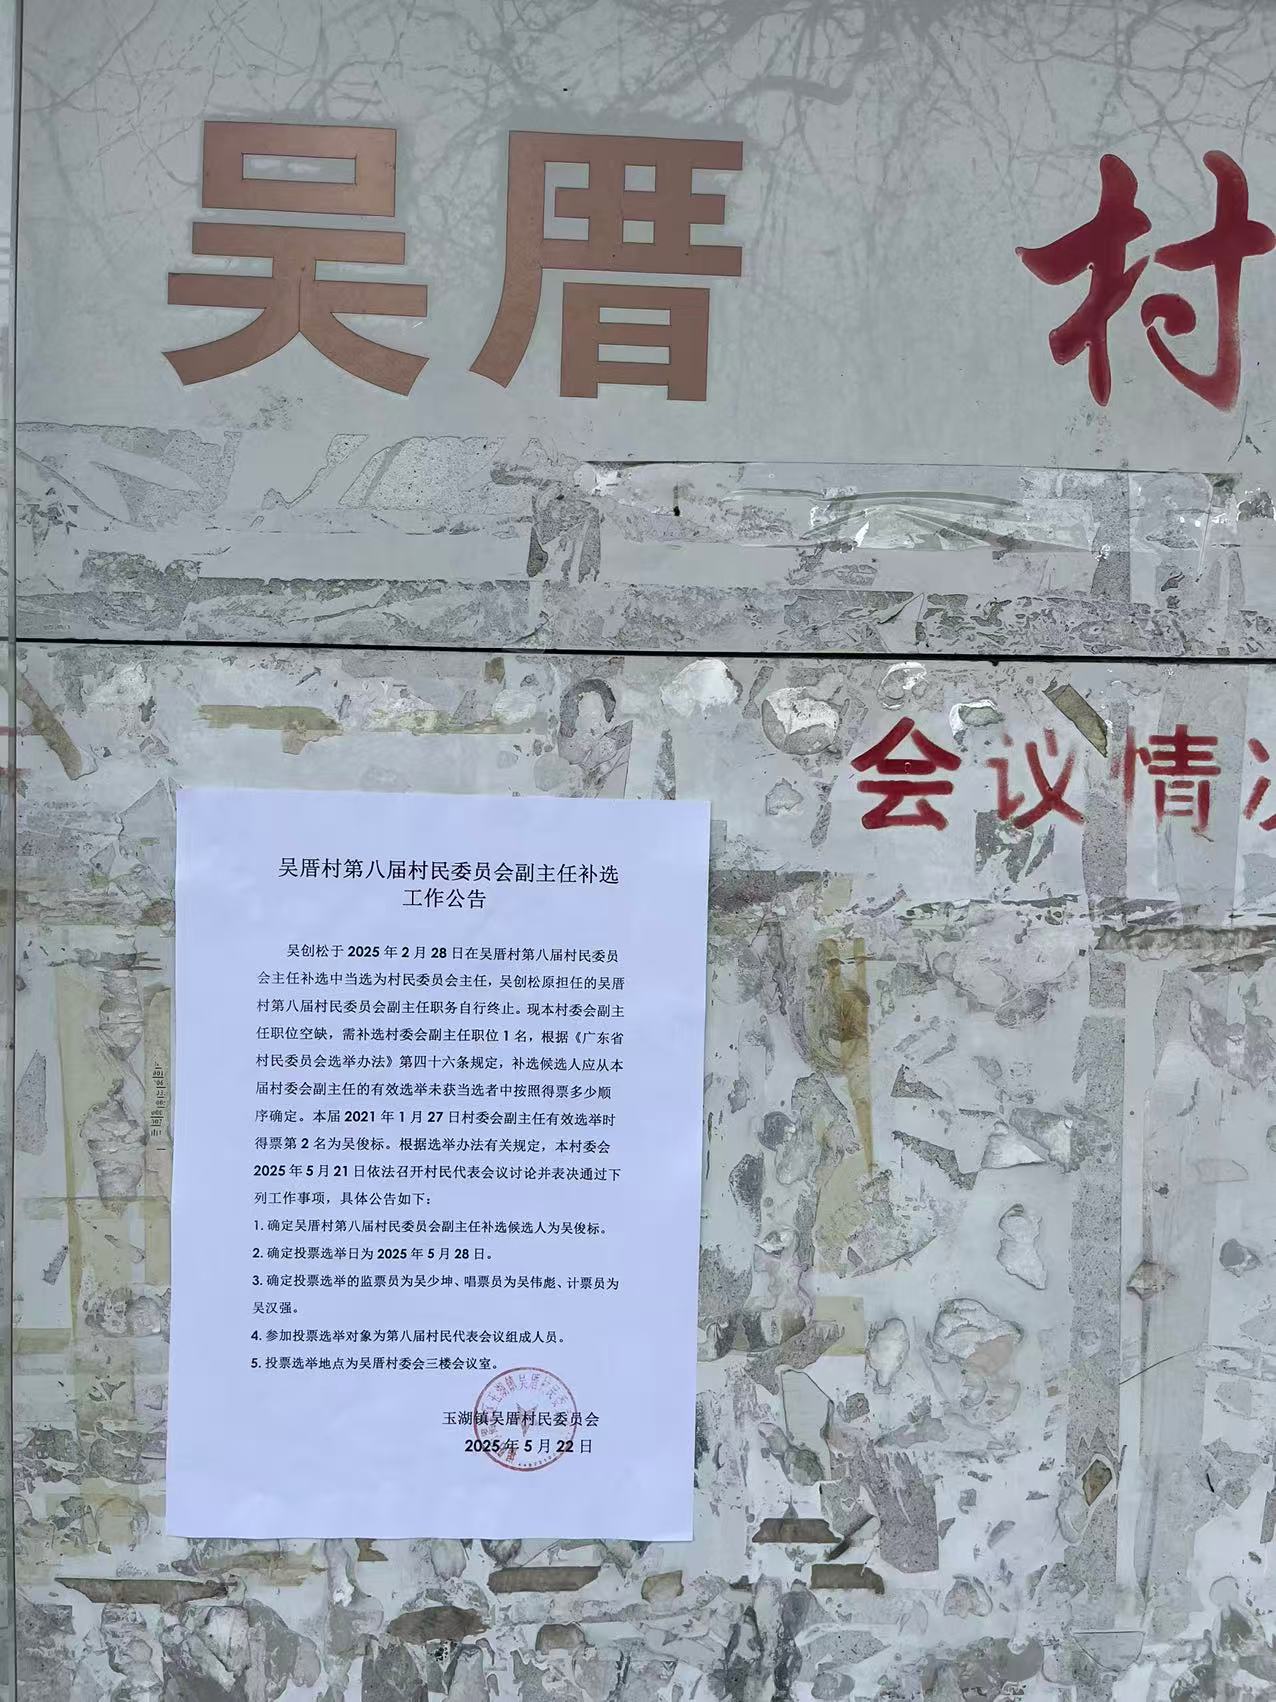 吴厝 村
会议情
吴厝村第八届村民委员会副主任补选
工作公告
吴创松于 2025 年 2 月 28 日在吴厝村第八届村民委员
会主任补选中当选为村民委员会主任，吴创松原担任的吴厝
村第八届村民委员会副主任职务自行终止。现本村委会副主
任职位空缺，需补选村委会副主任职位 1 名，根据《广东省
村民委员会选举办法》第四十六条规定，补选候选人应从本
届村委会副主任的有效选举未获当选者中按照得票多少顺
序确定。本届 2021 年 1 月 27 日村委会副主任有效选举时
得票第 2 名为吴俊标。根据选举办法有关规定，本村委会
2025 年 5 月 21 日依法召开村民代表会议讨论并表决通过下
列工作事项，具体公告如下：
1. 确定吴厝村第八届村民委员会副主任补选候选人为吴俊标。
2. 确定投票选举日为 2025 年 5 月 28 日。
3. 确定投票选举的监票员为吴少坤、唱票员为吴伟彪、计票员为
吴汉强。
4. 参加投票选举对象为第八届村民代表会议组成人员。
5. 投票选举地点为吴厝村委会三楼会议室。
玉湖镇吴厝村民委员会
2025 年 5 月 22 日